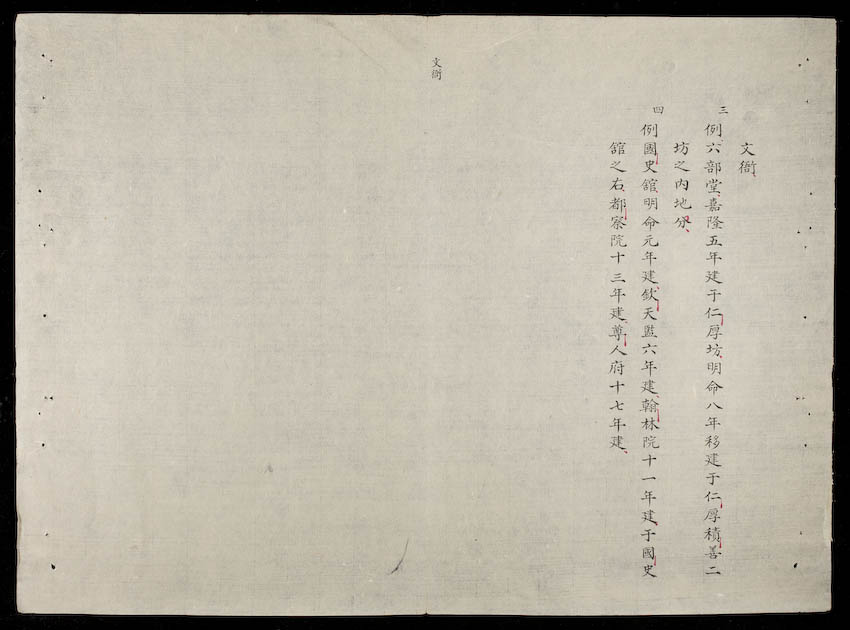 文衙
三
例六部堂嘉隆五年建于仁厚坊明命八年移建于仁厚積善二
坊之内地分
四
例國史館明命元年建欽天監六年建翰林院十一年建于國史
舘之右都察院十三年建尊人府十七年建
文衙